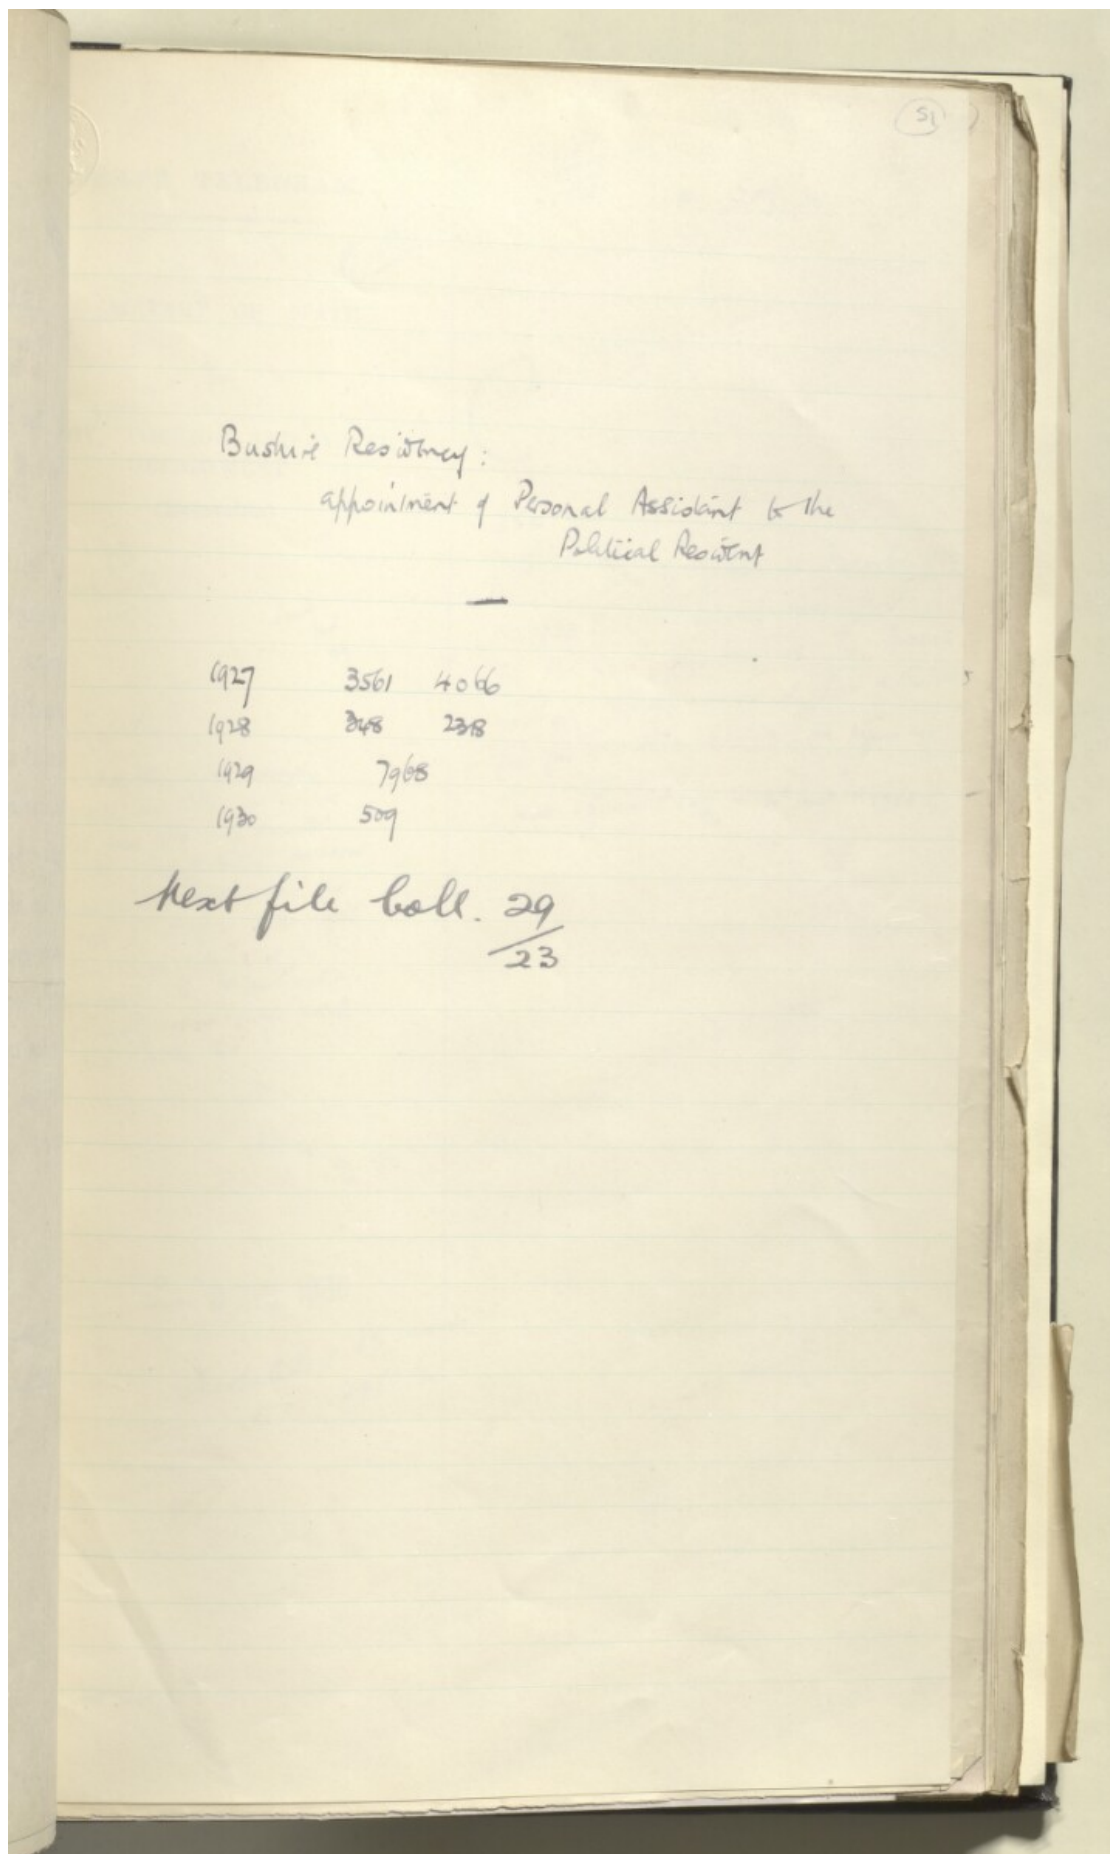 51
Bushire Residency:
appointment of Personal Assistant to the
Political Resident
1927 3561 4066
1928 348 2318
1929 7968
1930 509
Next file Coll. 29
/23